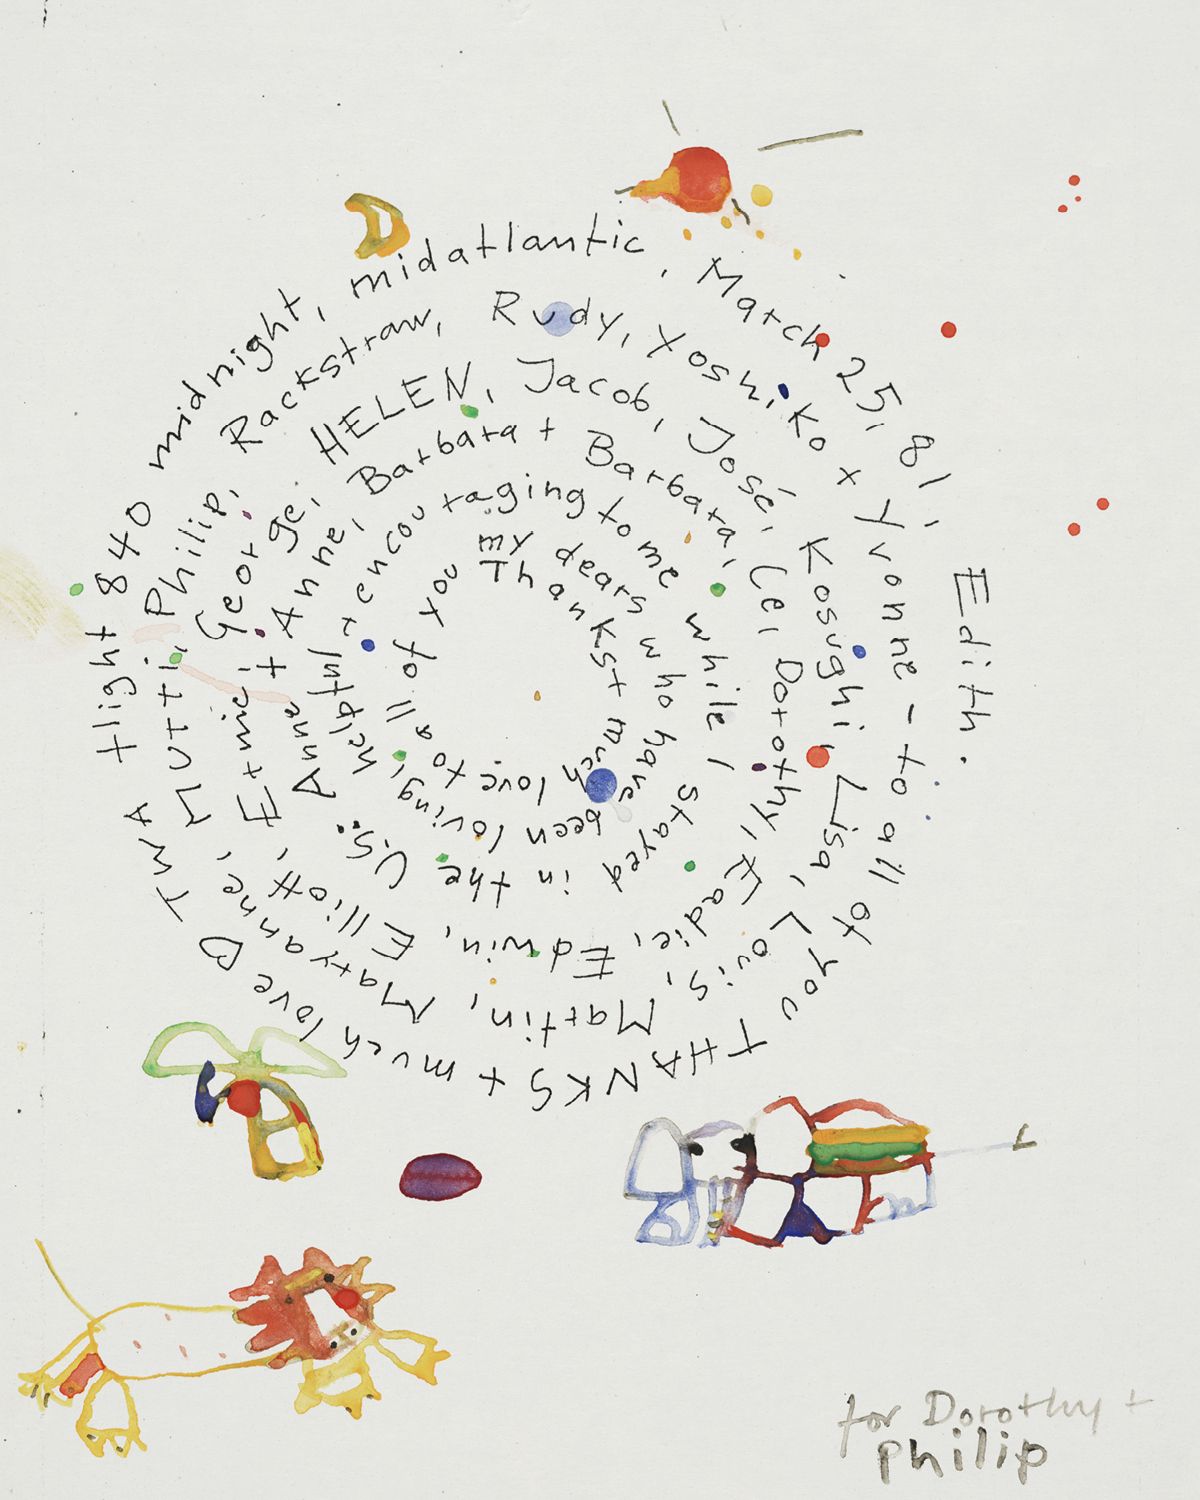 Thanks + much love to all of you
my dears who have been loving, helpful + encouraging
to me while I stayed in the U.S.: Anne + Anne, Barbara +
Barbara, Dorothy, Eadie, Edwin, Elliott, Ernie, George, HELEN,
Jacob, José, Kosughi, Lisa, Louis, Martin, Maryanne, Mutti, Philip, Rackstraw,
Rudy, Yoshiko + Yvonne - to all of you THANKS + much love ♡ TWA flight 840 midnight, midatlantic, March 25, 81, Edith.
for Dorothy +
Philip